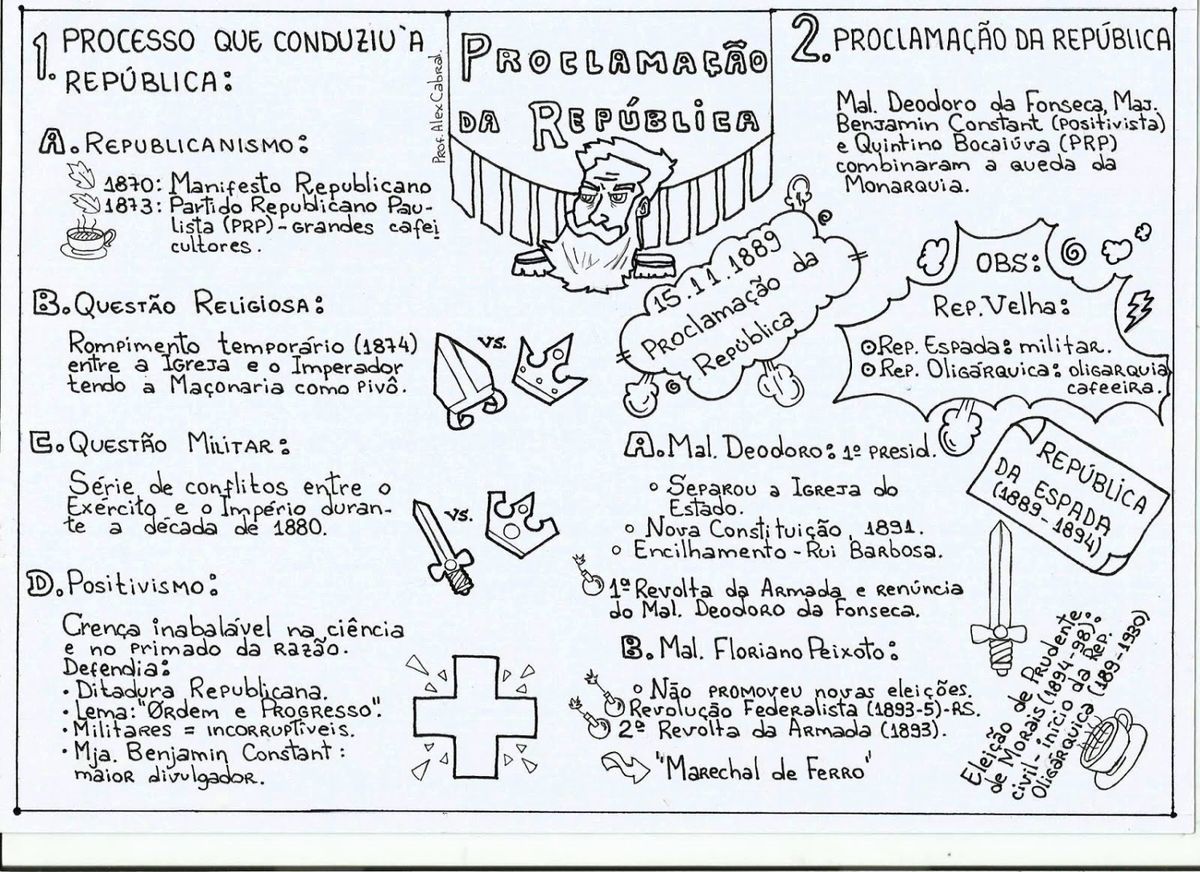 1. PROCESSO QUE CONDUZIU`A
REPÚBLICA:
A. REPUBLICANISMO:
1870: Manifesto Republicano
1873: Partido Republicano Pau-
lista (PRP) - Grandes cafei
cultores.
B. QUESTÃO RELIGIOSA:
Rompimento temporário (1874)
entre a Igreja e o Imperador
tendo a Maçonaria como pivô.
VS.
C. QUESTÃO MILITAR:
Série de conflitos entre o
Exército e o Império duran-
te a década de 1880.
VS.
D. POSITIVISMO:
Crença inabalável na ciência
e no primado da razão.
Defendia:
• Ditadura Republicana.
• Lema: "Ordem e Progresso".
• Militares = incorruptíveis.
• Mja. Benjamin Constant:
maior divulgador.
Prof. Alex Cabral.
PROCLAMAÇÃO
DA REPÚBLICA
15.11.1889
Proclamação da
República
2. PROCLAMAÇÃO DA REPÚBLICA
Mal. Deodoro da Fonseca, Maj.
Benjamin Constant (positivista)
e Quintino Bocaiúva (PRP)
combinaram a queda da
Monarquia.
OBS:
Rep. Velha:
Rep. Espada: militar.
Rep. Oligárquica: oligarquia
cafeeira.
A. Mal. Deodoro: 1º presid.
° Separou a Igreja do
Estado.
° Nova Constituição, 1891.
° Encilhamento - Rui Barbosa.
1ª Revolta da Armada e renúncia
do Mal. Deodoro da Fonseca.
B. Mal. Floriano Peixoto:
° Não promoveu novas eleições.
Revolução Federalista (1893-5)-RS.
2ª Revolta da Armada (1893).
"Marechal de Ferro"
REPÚBLICA
DA ESPADA
(1889-1894)
Eleição de Prudente
de Morais (1894-98):
civil - início da Rep.
Oligárquica (189-1930)